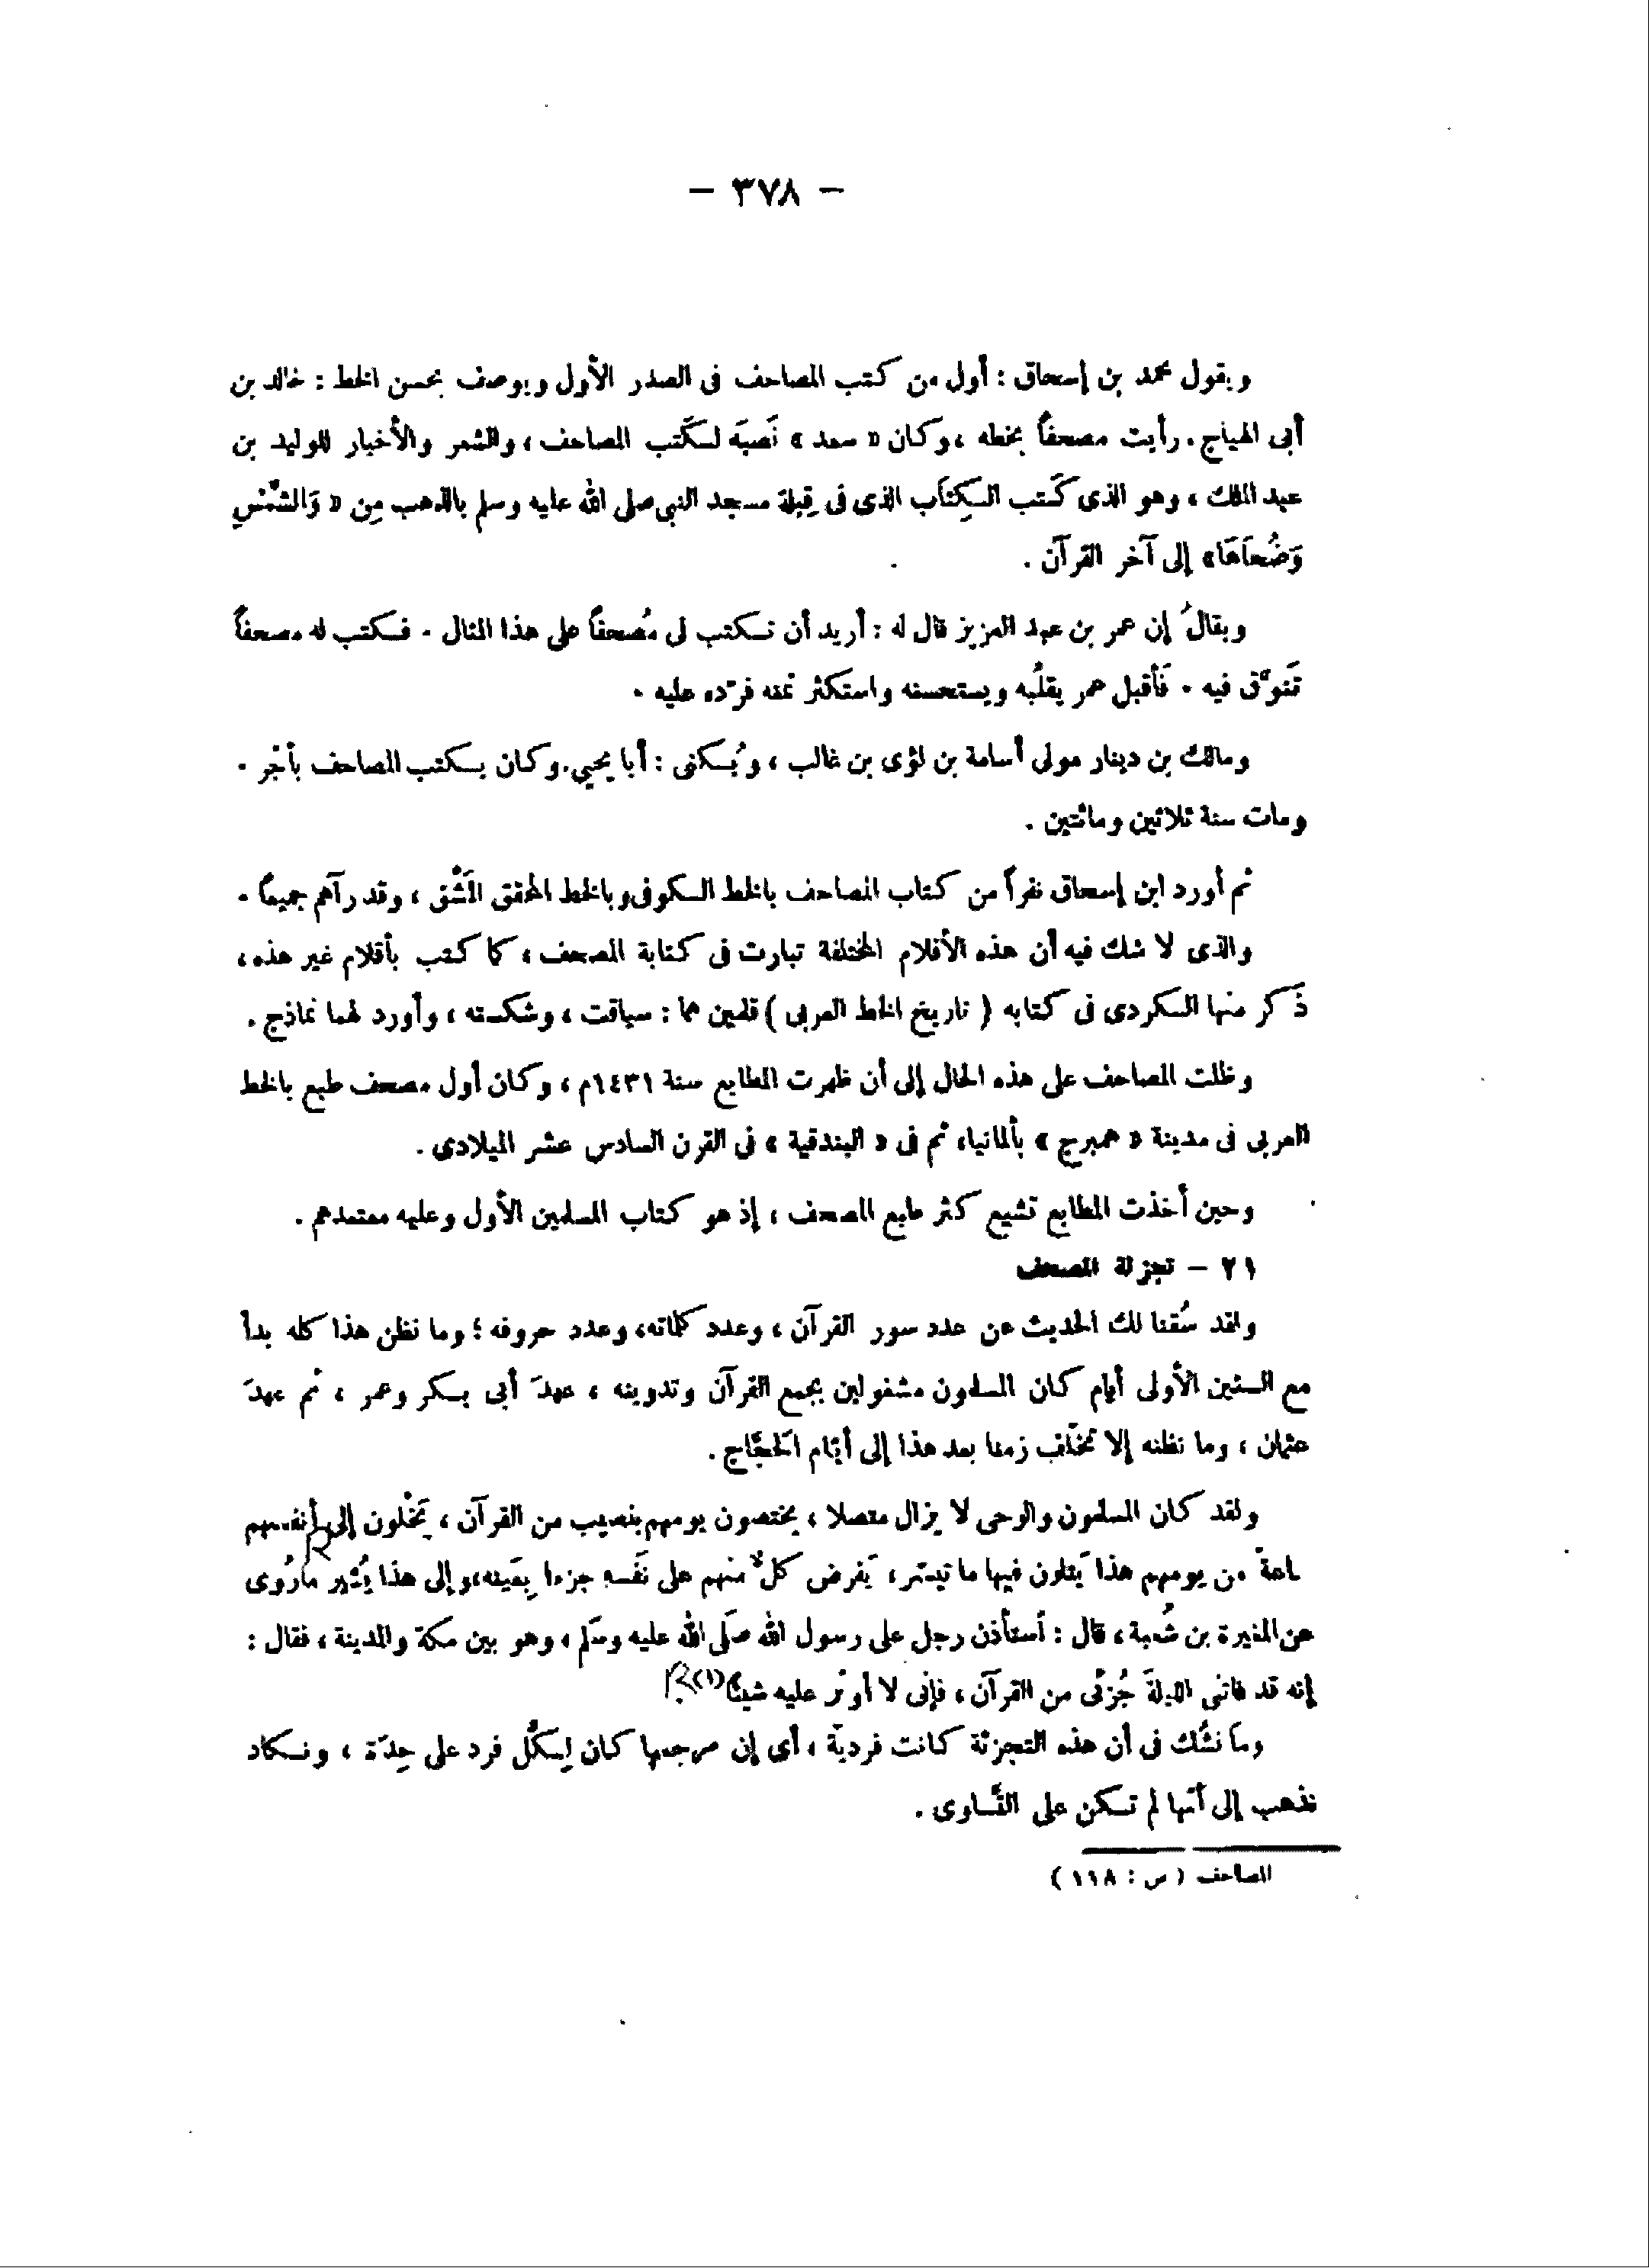 — ٣٧٨ —
ويقول محمد بن إسحاق : أول من كتب المصاحف فى الصدر الأول ويوصف بحسن الخط : خالد بن
أبى الهياج . رأيت مصحفاً بخطه ، وكان « سعد » نَصبَه لكَتب المصاحف ، والشعر والأخبار للوليد بن
عبد الملك ، وهو الذى كَتب الكِتاب الذى فى قِبلة مسجد النبى صلى الله عليه وسلم بالذهب مِن « وَالشَّمْسِ
وَضُحاَهَا » إلى آخر القرآن .
ويقالُ إن عمر بن عبد العزيز قال له : أريد أن تكتب لى مُصحفاً على هذا المثال . فكتب له مصحفاً
تَنوَّق فيه . فَأقبل عمر يقلُبه ويستحسنه واستكثر ثمنه فردّه عليه .
ومالك بن دينار مولى أسامة بن لؤى بن غالب ، ويُكنى : أبا يحيي . وكان يكتب المصاحف بأجْر .
ومات سنة ثلاثين ومائتين .
ثم أورد ابن إسحاق نفراً من كتاب المصاحف بالخط الكوفى وبالخط المحقق المَشْق ، وقد رآهم جميعاً .
والذى لا شك فيه أن هذه الأقلام المختلفة تبارت فى كتابة المصحف ، كما كتب بأقلام غير هذه ،
ذَكر منها الكردى فى كتابه ( تاريخ الخط العربى ) قلمين هما : سياقت ، وشكسته ، وأورد لهما نماذج .
وظلت المصاحف على هذه الحال إلى أن ظهرت المطابع سنة ١٤٣١م ، وكان أول مصحف طبع بالخط
العربى فى مدينة « همبرج » بألمانيا ، ثم فى « البندقية » فى القرن السادس عشر الميلادى .
وحين أخذت المطابع تشيع كثر طبع المصحف ، إذ هو كتاب المسلمين الأول وعليه معتمدهم .
٢١ — تجزئة المصحف
ولقد سُقنا لك الحديث عن عدد سور القرآن ، وعدد كلماته ، وعدد حروفه ؛ وما نظن هذا كله بدأ
مع السنين الأولى أيام كان المسلمون مشغولين بجمع القرآن وتدوينه ، عهدَ أبى بكر وعمر ، ثم عهدَ
عثمان ، وما نظنه إلا تخلّف زمنا بعد هذا إلى أيّام الَحجّاج .
ولقد كان المسلمون والوحى لا يزال متصلا ، يختصون يومهم بنصيب من القرآن ، يَخْلون إلى أنفسهم
ساعةً من يومهم هذا يَتلون فيها ما تيسّر ، يَفرض كلٌّ منهم على نَفسه جزءا بِعَينه ، وإلى هذا يُشير ما رُوى
عن المغيرة بن شُعبة ، قال : أستأذن رجل على رسول الله صَلّى الله عليه وسَلم ، وهو بين مكة والمدينة ، فقال :
إنه قد فاتنى الليلةَ جُزئى من القرآن ، فإنى لا أوثر عليه شيئاً (١)
وما نشُك فى أن هذه التجزئة كانت فرديّة ، أى إن مرجعها كان لِكلّ فرد على حِدَة ، ونكاد
نذهب إلى أنّها لم تكن على التَّساوى .
المصاحف ( س : ١١٨ )